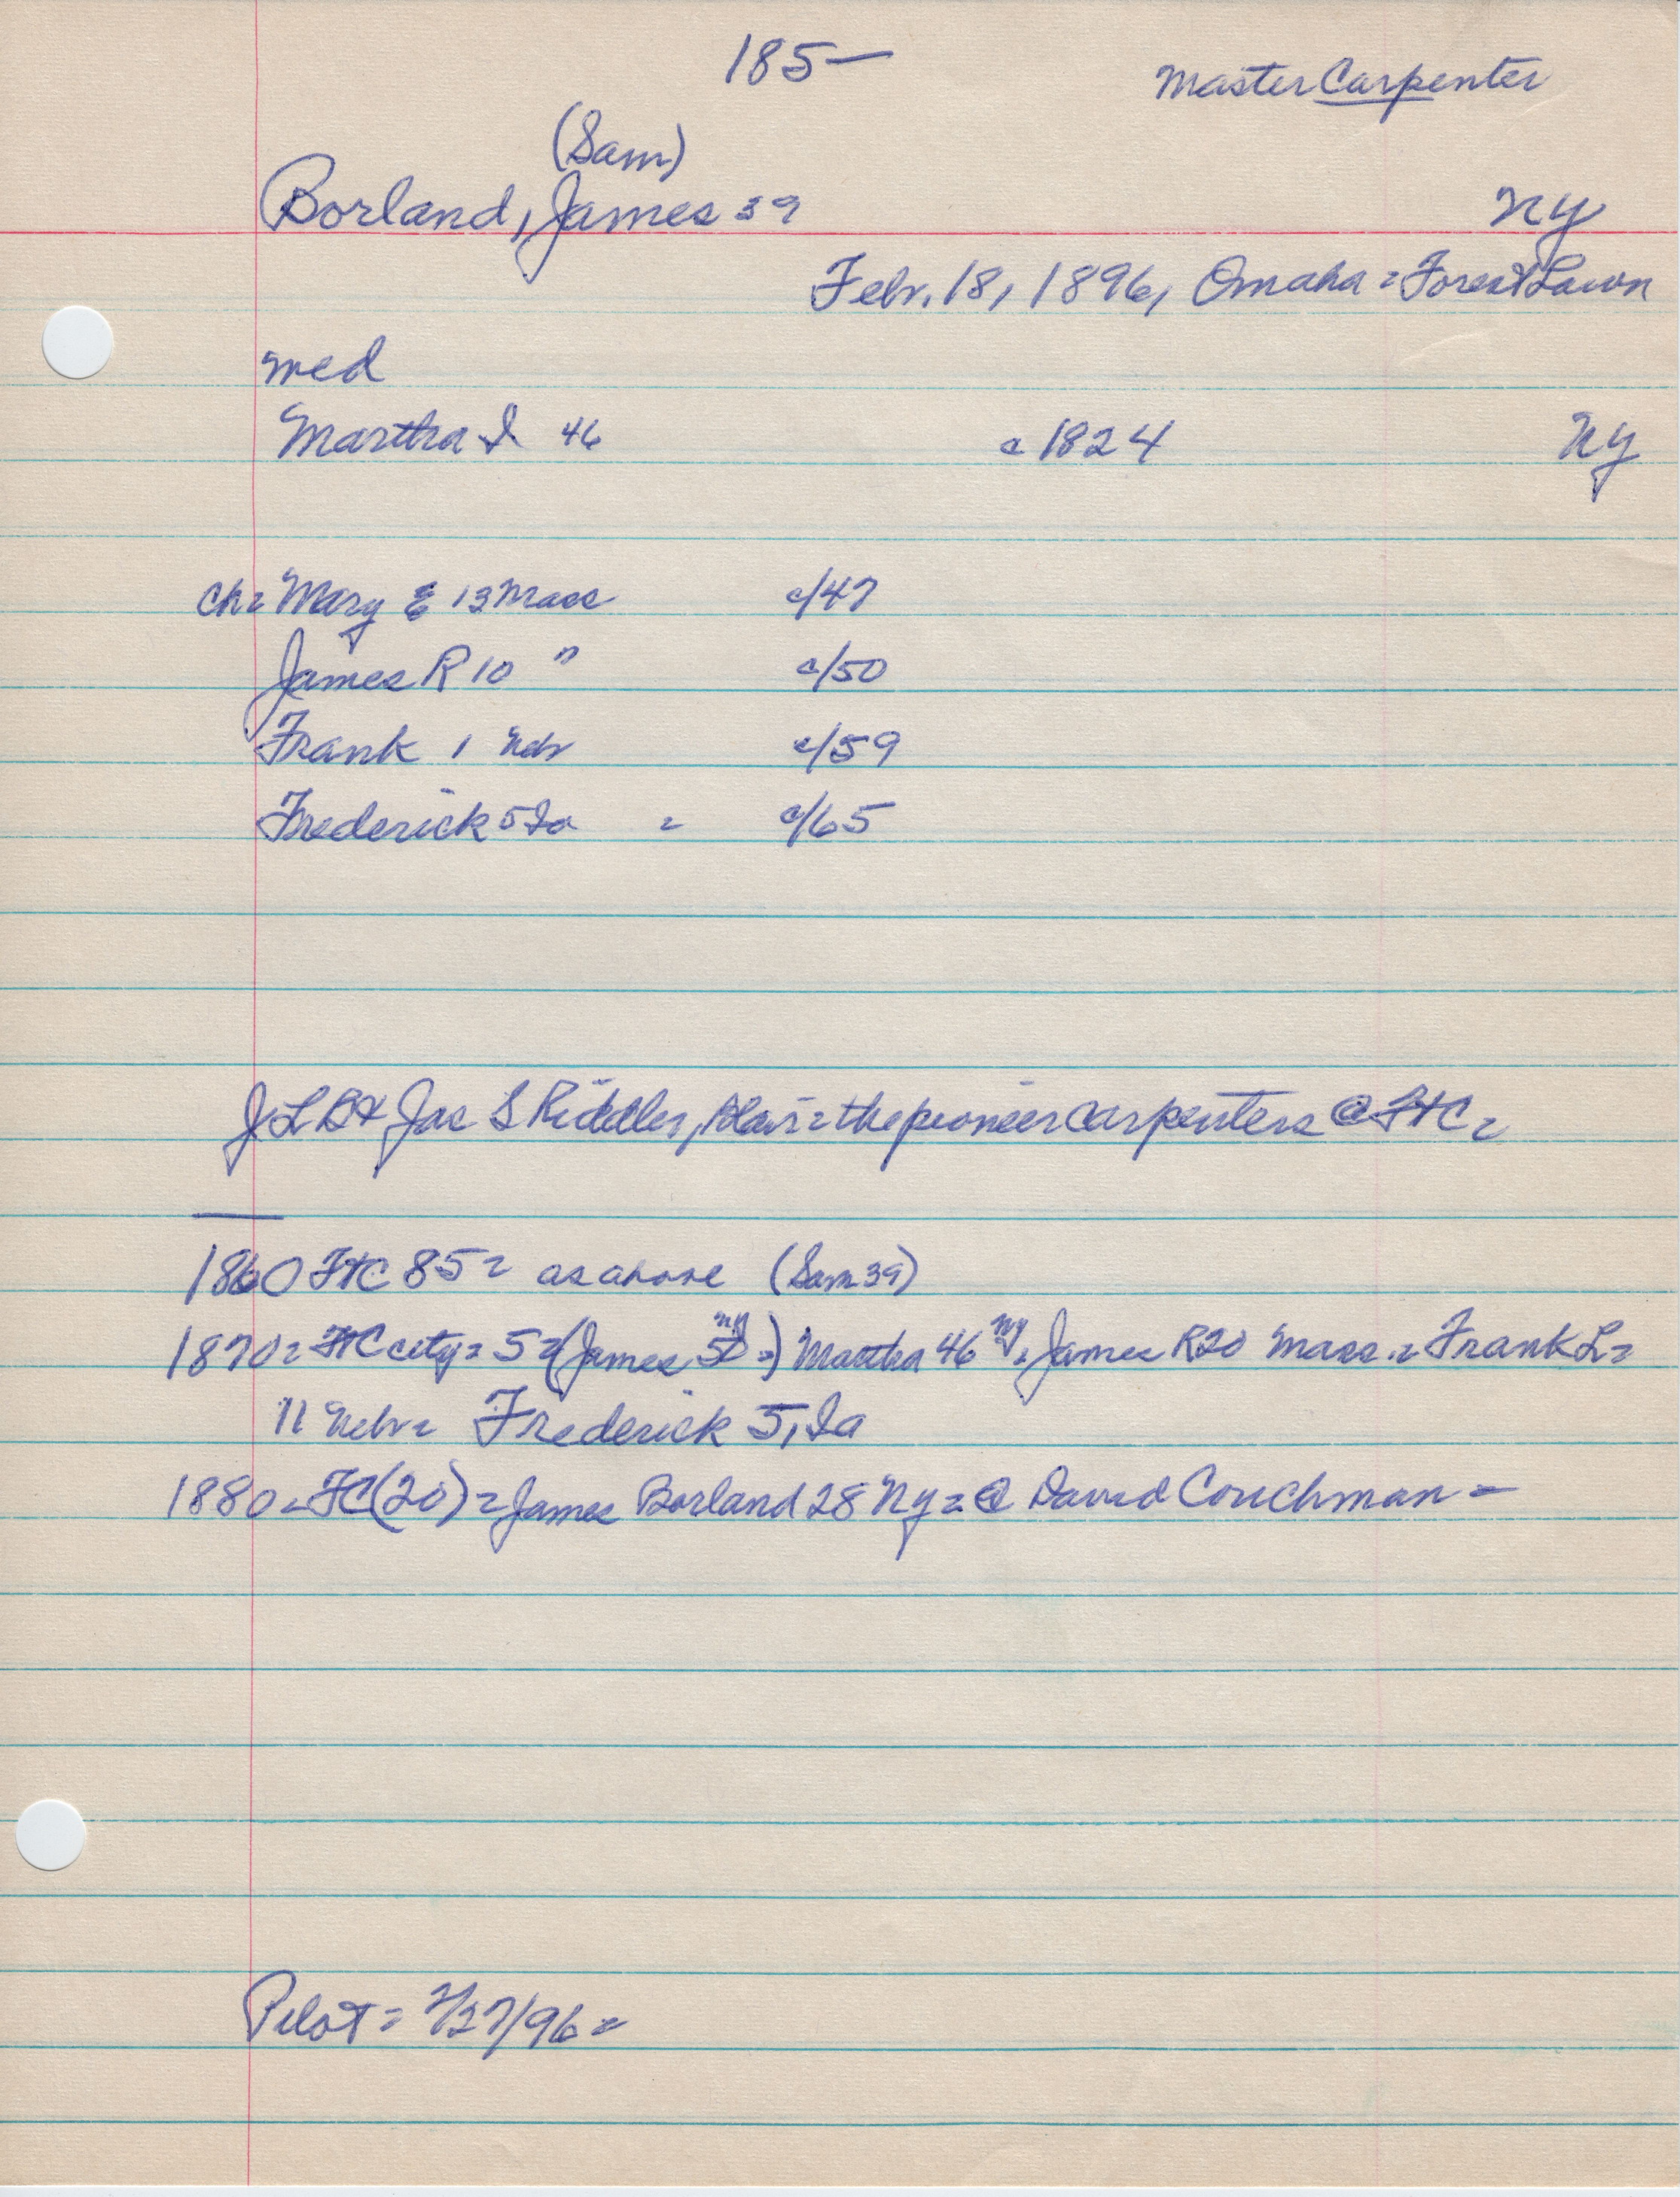 185—
Master Carpenter
(Sam)
Borland, James 39 NY
Febr. 18, 1896, Omaha = Forest Lawn
med
Martha I 46 c 1824 NY
ch = Mary E 13 Mass c/47
James R 10 " c/50
Frank 1 Neb c/59
Frederick 5 Ia = c/65
J L B & Jas S Riddler, Blair = the pioneer carpenters @ FTC =
1860 FTC 85 = as above (Sam 39)
1870 = FTC city = 5 = (James NY =) Martha 46 NY, James R 20 Mass. = Frank L =
11 Nebr = Frederick 5, Ia
1880 = FC (20) = James Borland 28 NY = @ David Couchman =
Pilot = 2/27/96 =